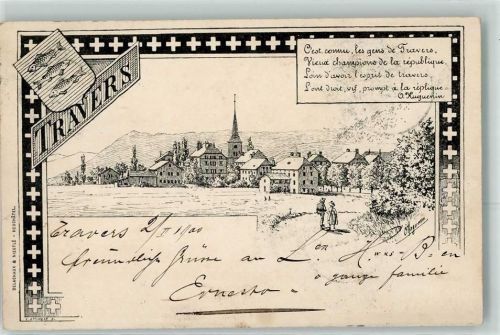 TRAVERS
C'est connu, les gens de Travers,
Vieux champions de la république,
Loin d'avoir l'esprit de travers,
L'ont droit, vif, prompt à la réplique.
O. Huguenin
DELACHAUX & NIESTLÉ - NEUCHÂTEL
Travers 2/II 1900
freundliche Grüsse au
a ganze familie
Ernesto